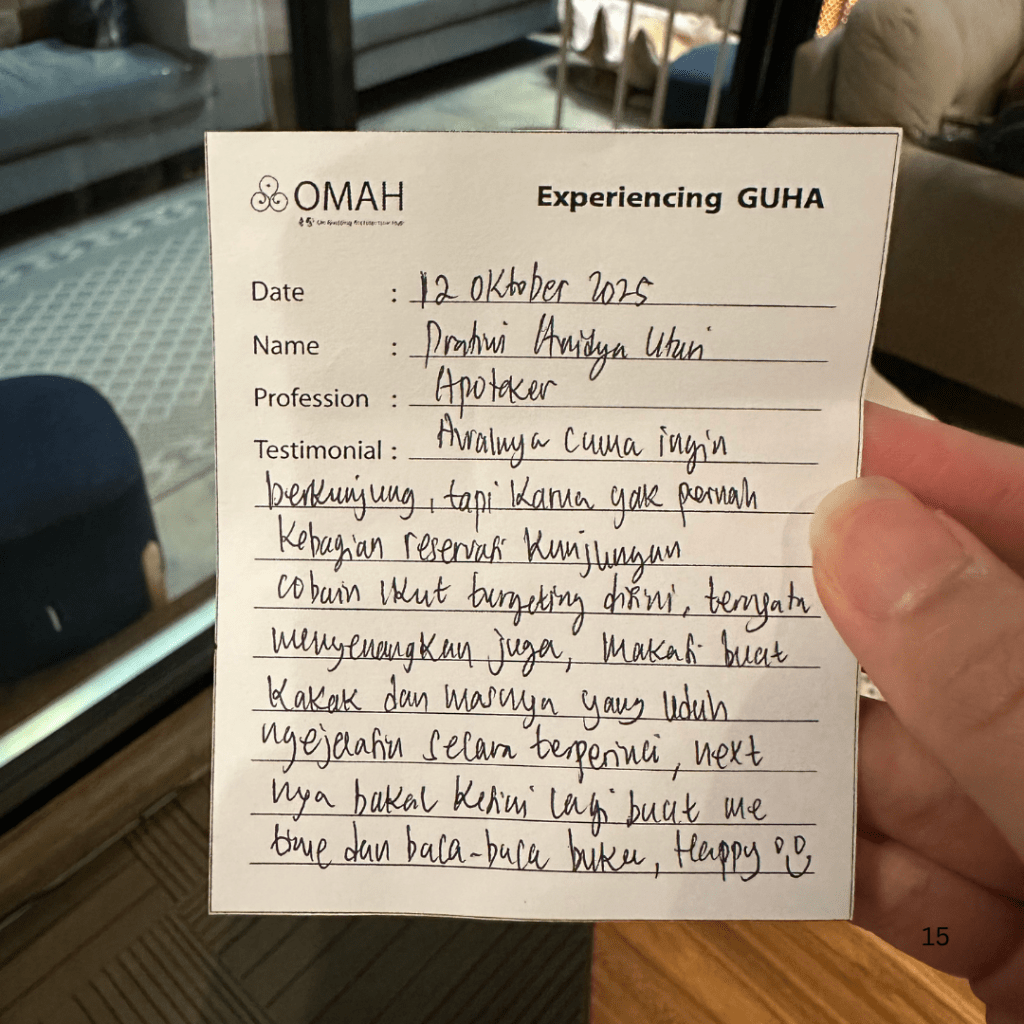 OMAH
Experiencing GUHA
Date : 12 Oktober 2025
Name : Pratiwi Anidya Utari
Profession : Apoteker
Testimonial : Awalnya cuma ingin
berkunjung, tapi karna gak pernah
kebagian reservasi kunjungan
cobain ikut targeting disini, ternyata
menyenangkan juga, Makasi buat
kakak dan masnya yang udah
ngejelasin secara terperinci, next
nya bakal kesini lagi buat me
time dan baca-baca buku, Happy
15